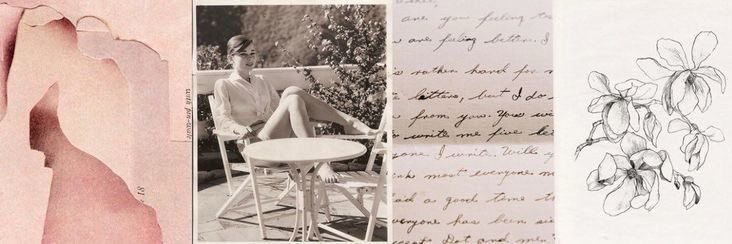 with pen-and-
18
are you feeling
are feeling better. I
rather hard for
letters, but I do
from you. You
write me five
one I write.
most everyone
had a good time
everyone has been
Dot and